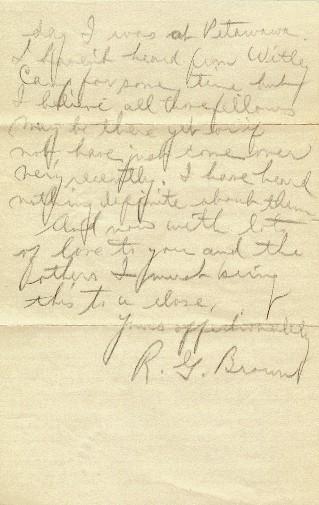 day I was at Petawawa.
I haven't heard from Witley
Camp for some time but
I believe all those fellows
may be there yet or if
not have just come over
very recently. I have heard
nothing definite about them
And now with lots
of love to you and the
others I must bring
this to a close.
Yours affectionately
R. G. Brown